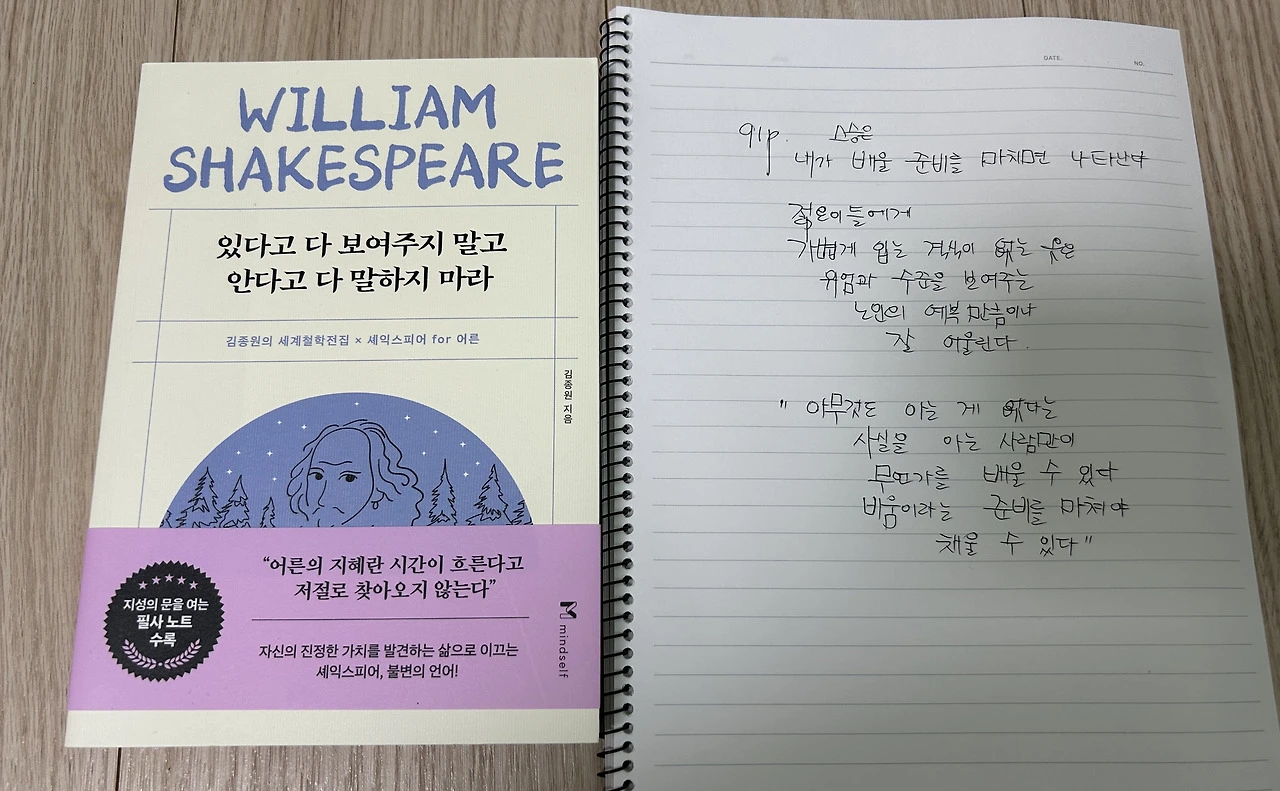 WILLIAM
SHAKESPEARE
있다고 다 보여주지 말고
안다고 다 말하지 마라
김종원의 세계철학전집 × 셰익스피어 for 어른
김종원 지음
지성의 문을 여는
필사 노트
수록
“어른의 지혜란 시간이 흐른다고
저절로 찾아오지 않는다”
자신의 진정한 가치를 발견하는 삶으로 이끄는
셰익스피어, 불변의 언어!
mindself
DATE.
NO.
91p. 스승은
내가 배울 준비를 마치면 나타난다
젊은이들에게
가볍게 입는 격식이 없는 옷은
위엄과 수준을 보여주는
노인의 예복만큼이나
잘 어울린다.
" 아무것도 아는 게 없다는
사실을 아는 사람만이
무언가를 배울 수 있다
비움이라는 준비를 마쳐야
채울 수 있다"